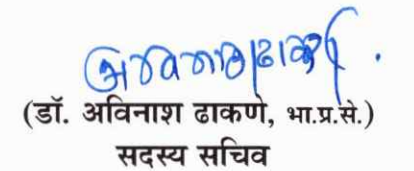 अविनाश ढाकणे
(डॉ. अविनाश ढाकणे, भा.प्र.से.)
सदस्य सचिव